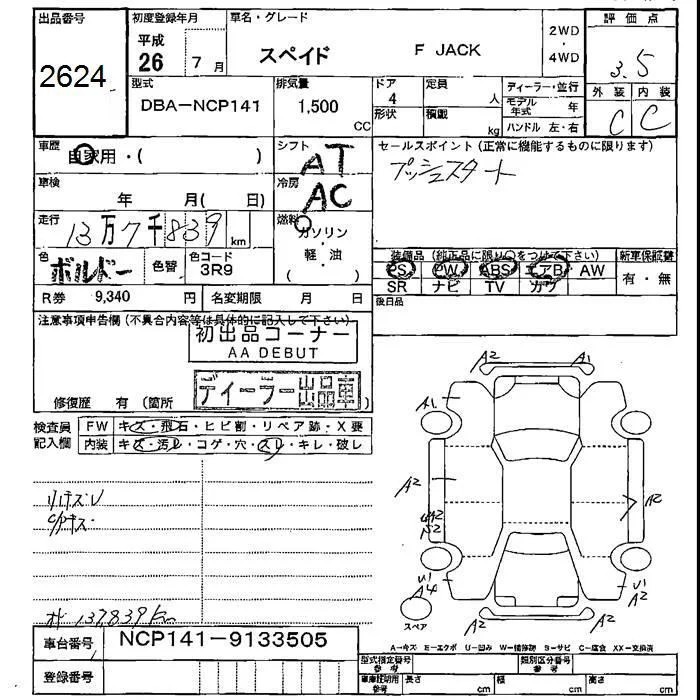 出品番号
2624
初度登録年月
平成
26 7月
車名・グレード
スペイド F JACK
2WD
・
4WD
評価点
3.5
外装 内装
C C
型式
DBA-NCP141
排気量
1,500
CC
ドア
4
形状
定員
人
積載
kg
ディーラー・並行
モデル年式 年
ハンドル 左・右
車歴
自家用・( )
シフト
AT
セールスポイント (正常に機能するものに限ります)
プッシュスタート
車検
年 月( 日)
冷房
AC
走行
13万7千839km
燃料
ガソリン
・
軽・油
( )
色
ボルドー
色替
色コード
3R9
装備品 (純正品に限り○をつけて下さい)
PS PW ABS エアB AW
SR ナビ TV カワ
新車保証書
有・無
R券 9,340 円
名変期限 月 日
後日品
注意事項申告欄 (不具合内容等は具体的に記入して下さい)
初出品コーナー
AA DEBUT
ディーラー出品車
修復歴 有 (箇所 )
検査員
記入欄
FW キズ・飛石・ヒビ割・リペア跡・X要
内装 キズ・汚レ・コゲ・穴・スレ・キレ・破レ
リムキズレ
オド 137,839km
車台番号 NCP141-9133505
登録番号
A2 A1
A1
A2
A2
A2
U1
A4
U1
A2
A2 A2
スペア
A-キズ E-エクボ U-凹み W-補修跡 S-サビ C-腐食 XX-交換済
型式指定番号
参考
類別区分番号
参考
車庫証明用
参考
長さ cm
幅 cm
高さ cm